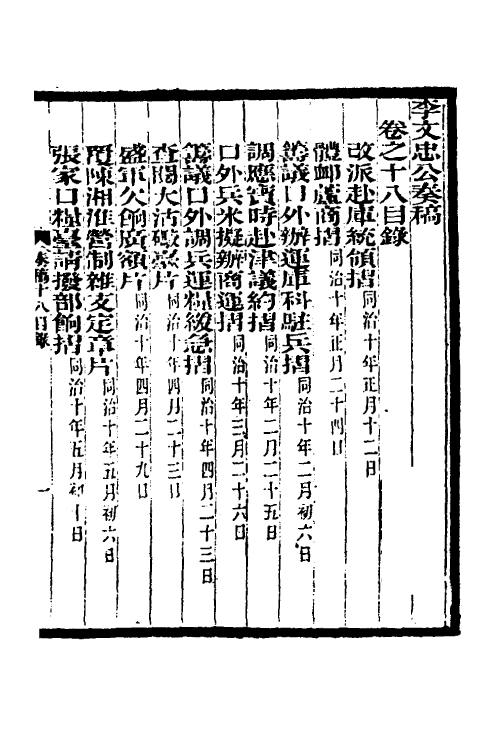 李文忠公奏稿
卷之十八目錄
改派赴庫統領摺 同治十年正月十二日
體卹蘆商摺 同治十年正月二十四日
籌議口外辦運庫科駐兵摺 同治十年二月初六日
調應寶時赴津議約摺 同治十年二月二十五日
口外兵米擬辦商運摺 同治十年三月二十六日
籌議口外調兵運糧緩急摺 同治十年四月二十三日
查閱大沽礮臺片 同治十年四月二十三日
盛軍欠餉廣額片 同治十年四月二十九日
覆陳湘淮營制雜支定章片 同治十年五月初六日
張家口糧臺請撥部餉摺 同治十年五月初十日
奏稿十八目錄 一